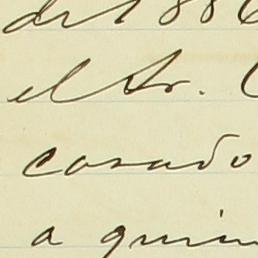 de 1886
el Sr.
casado
a quien